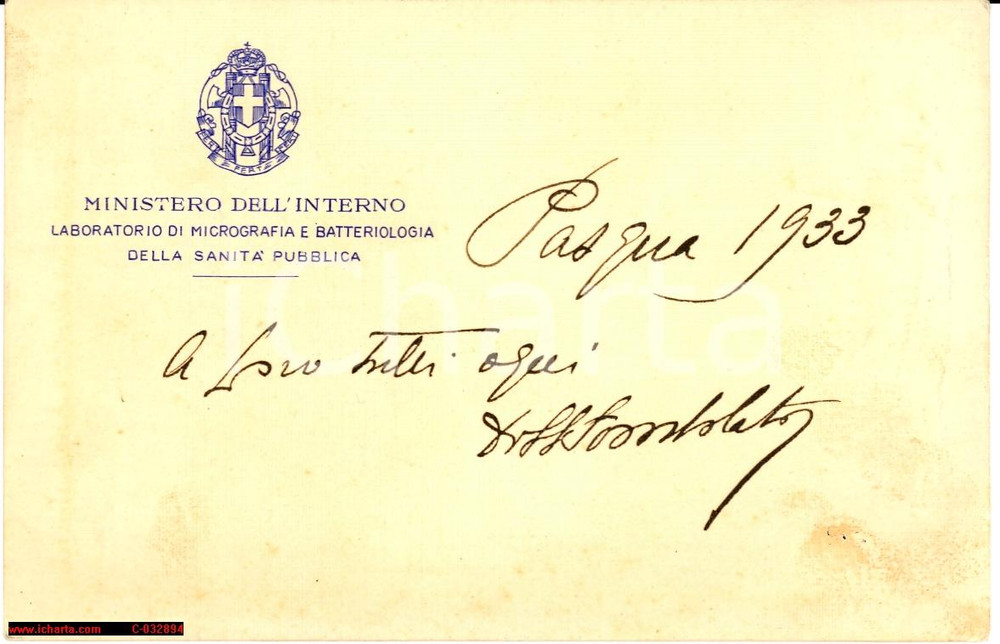 FERT
MINISTERO DELL'INTERNO
LABORATORIO DI MICROGRAFIA E BATTERIOLOGIA
DELLA SANITA' PUBBLICA
Pasqua 1933
iCharta
A Loro tutti
www.icharta.com C-032894